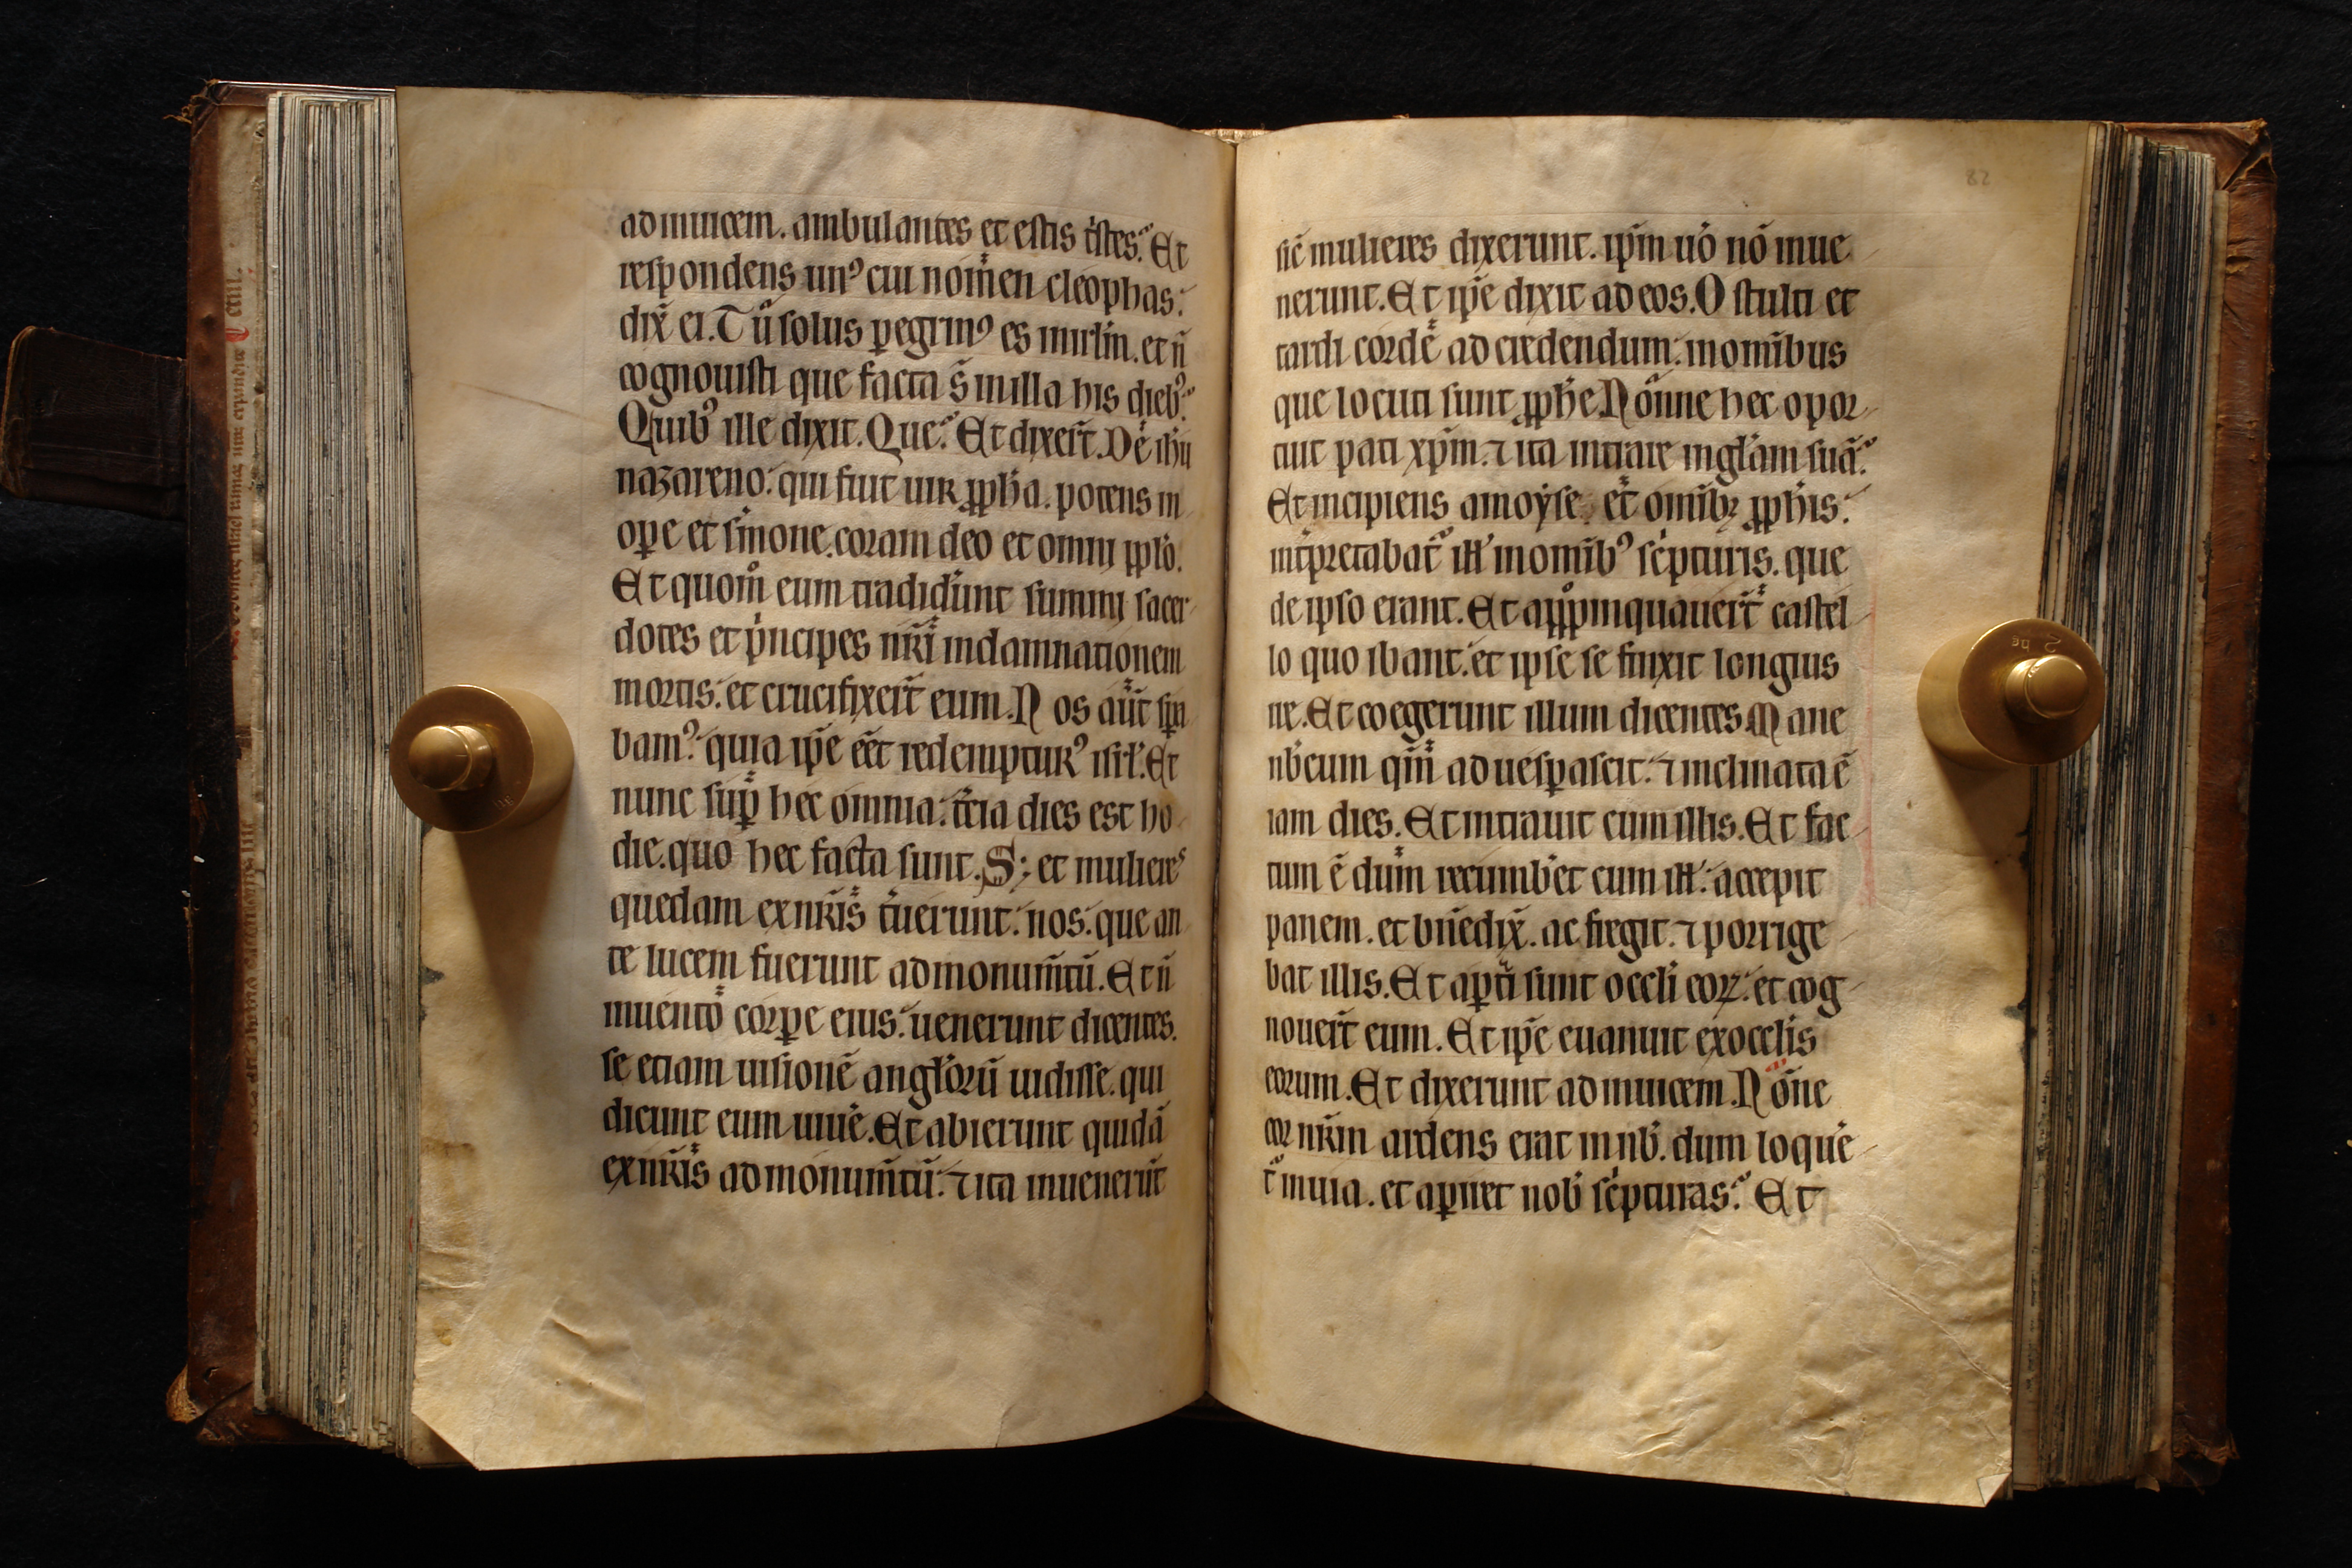 adinuicem. ambulantes et estis tͥstes. Et
respondens unꝰ cui nomen cleophas:
dix̄ ei. Tu solus ꝑegrinꝰ es inirłm. et n̄
cognouisti que facta s̄ in illa his diebꝰ.
Quibꝰ ille dixit. Que. Et dixer̄t. De ihu
nazareno: qui fuit uir ꝓph̄a. potens in
oꝑe et s̓mone. coram deo et omni ppl̓o.
Et quom̊ eum tradid̓unt summi sacer
dotes et pͥncipes nr̄i indamnationem
mortis: et crucifixer̄t eum. Nos aūt sꝑa
bamꝰ: quia ip̄e eēt redempturꝰ isrł. Et
nunc suꝑ hec omnia: t̓cia dies est ho
die. quo hec facta sunt. S; et mulieres
quedam exnr̄is t̓ruerunt: nos: que an
te lucem fuerunt admonum̄tū. Et n̄
inuento corꝑe eius: uenerunt dicentes.
se etiam uisionē angłorū uidisse. qui
dicunt eum uiue̓. Et abierunt quidā
exnr̄is admonum̄tū: ⁊ ita inuenerūt
82
sic̄ mulieres dixerunt. ip̄m uo̓ nō inue
nerunt. Et ip̄e dixit ad eos. O stulti et
tardi corde ad credendum: inomībus
que locuti sunt ꝓph̄e. Nonne hec opor
tuit pati xp̄m. ⁊ ita intrare inglām suā.
Et incipiens amoyse. et omībꝫ ꝓph̄is:
int̓pretabat̄ ill̓ inomībꝰ scͥpturis. que
de ipso erant. Et apꝓpinquauer̄t castel
lo quo ibant: et ipse se finxit longius
ire. Et coegerunt illum dicentes. Mane
nb̓cum qm̄ aduesꝑascit: ⁊ inclinata ē
iam dies. Et intrauit cum illis. Et fac
tum ē dum recumb̓et cum ill̓: accepit
panem. et bn̄edix̄. ac fregit. ⁊ porrige
bat illis. Et aꝑti sunt occl̓i eoꝝ: et cog
nouer̄t eum. Et ip̄e euanuit exoccl̓is
eorum. Et dixerunt adinuicem. Nōne
cor nr̄m ardens erat in nb̓. dum loque̓
t̄ inuia. et aꝑiret nob̓ scͥpturas. Et